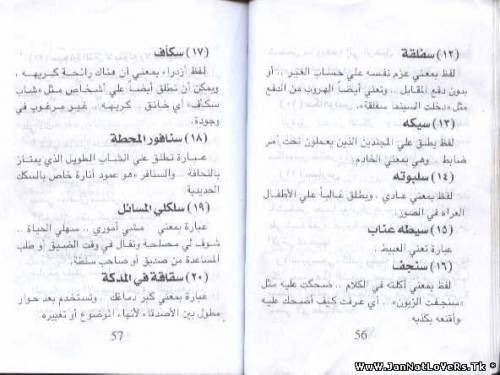 (١٢) سفلقة
لفظ بمعني عزم نفسه علي حساب الغير .. أو
بدون دفع المقابل .. وتعني أيضاً الهروب من الدفع
مثل «دخلت السينما سفلقة».
(١٣) سيكه
لفظ يطلق علي المجندين الذين يعملون تحت أمر
ضابط .. وهي بمعني الخادم.
(١٤) سلبوته
لفظ بمعني عادي .. ويطلق غالباً علي الأطفال
العراه في الصور.
(١٥) سيطه عناب
عبارة تعني العبيط.
(١٦) سنجف
لفظ بمعني أكلته في الكلام .. ضحكت عليه مثل
«سنجفت الزبون» .. أي عرفت كيف أضحك عليه
وأقنعه بكذبه.
56
(١٧) سكأف
لفظ أزدراء بمعني أن هناك رائحة كريهه ..
ويمكن أن تطلق أيضاً علي أشخاص مثل «شاب
سكأف» أي خانق .. كريهه .. غير مرغوب في
وجودة.
(١٨) سنافور المحطة
عبارة تطلق علي الشاب الطويل الذي يمتاز
بالنحافة .. والسنافر «هو عمود أنارة خاص بالسكك
الحديدية
(١٩) سلكلي المسائل
عبارة بمعني مشي أموري .. سهلي الحياة ..
شوف لي مصلحة وتقال في وقت الضيق أو طلب
المساعدة من صديق أو صاحب سلطة.
(٢٠) سقافة في المدكة
عبارة بمعني كبر دماغك .. وتستخدم بعد حوار
مطول بين الأصدقاء لأنهاء الموضوع أو تغييره.
57
WwW.JanNatLoVeRs.Tk *